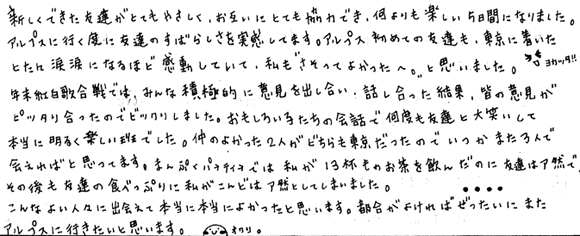 新しくできた友達がとてもやさしく、お互いにとても協力でき、何よりも楽しい5日間になりました。
アルプスに行く度に友達のすばらしさを実感してます。アルプス初めての友達も、東京に着いた
とたん涙涙になるほど感動していて、私もさそってよかった〜。と思いました。
ヨカッタ!!
年末紅白歌合戦では、みんな積極的に意見を出し合い、話し合った結果、皆の意見が
ピッタリ合ったのでビックリしました。おもしろいろたちの会話で何度も友達と大笑いして
本当に明るく楽しい班でした。仲のよかった2人がどちらも東京だったのでいつかまた3人で
会えればと思ってます。まんぷくパラティフでは私が13杯ものお茶を飲んだのに友達はア然で
その後も友達の食べっぷりに私がこんどはア然としてしまいました。
こんなよい人々に出会えて本当に本当によかったと思います。都合がよければぜったいにまた
アルプスに行きたいと思います。 オワリ。